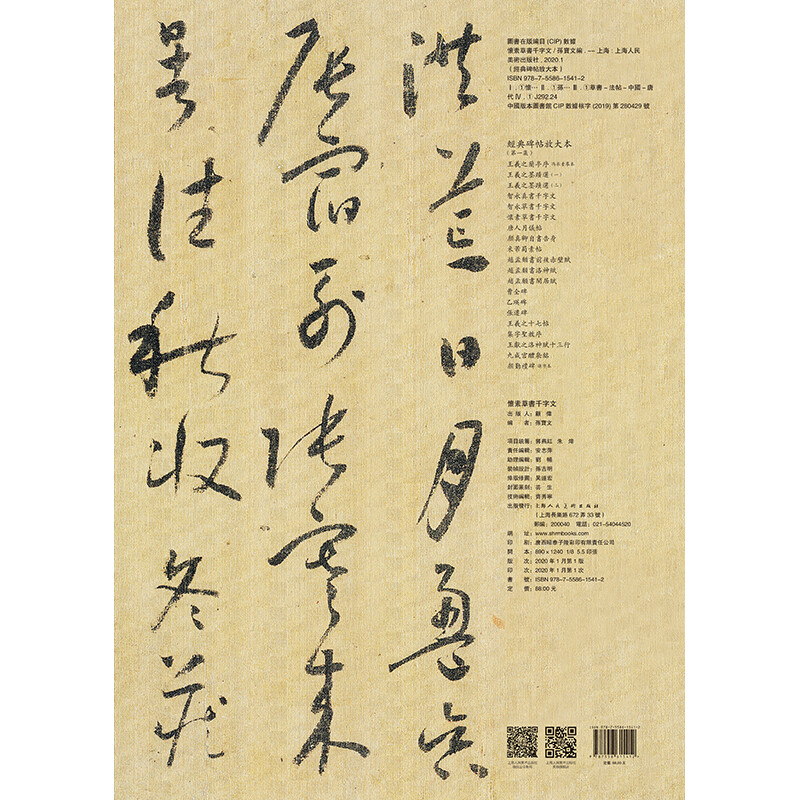 洪荒日月盈昃
辰宿列張寒來
暑往秋收冬藏
圖書在版編目 (CIP) 數據
懷素草書千字文 / 孫寶文編 . -- 上海 : 上海人民
美術出版社 , 2020.1
(經典碑帖放大本)
ISBN 978-7-5586-1541-2
Ⅰ . ①懷… Ⅱ . ①孫… Ⅲ . ①草書－法帖－中國－唐
代 Ⅳ . ① J292.24
中國版本圖書館 CIP 數據核字 (2019) 第 280429 號
經典碑帖放大本
(第一集)
王羲之蘭亭序
王羲之墨蹟選 (一)
王羲之墨蹟選 (二)
智永真書千字文
智永草書千字文
懷素草書千字文
唐人月儀帖
顏真卿自書告身
米芾蜀素帖
趙孟頫書前後赤壁賦
趙孟頫書洛神賦
趙孟頫書閑居賦
曹全碑
乙瑛碑
張遷碑
王羲之十七帖
集字聖教序
王獻之洛神賦十三行
九成宮醴泉銘
顏勤禮碑
懷素草書千字文
出 版 人：顧 偉
編 者：孫寶文
項目統籌：
責任編輯：
助理編輯：
裝幀設計：
排版修圖：
封面篆刻：
技術編輯：
出版發行：上海人民美術出版社
(上海長樂路 672 弄 33 號)
郵編：200040 電話：021-54044520
網 址：www.shrmbooks.com
印 刷：廣西昭泰子隆彩印有限責任公司
開 本：890×1240 1/8 5.5 印張
版 次：2020 年 1 月第 1 版
印 次：2020 年 1 月第 1 次
書 號：ISBN 978-7-5586-1541-2
定 價：88.00 元
ISBN 978-7-5586-1541-2
定價: 88.00 元